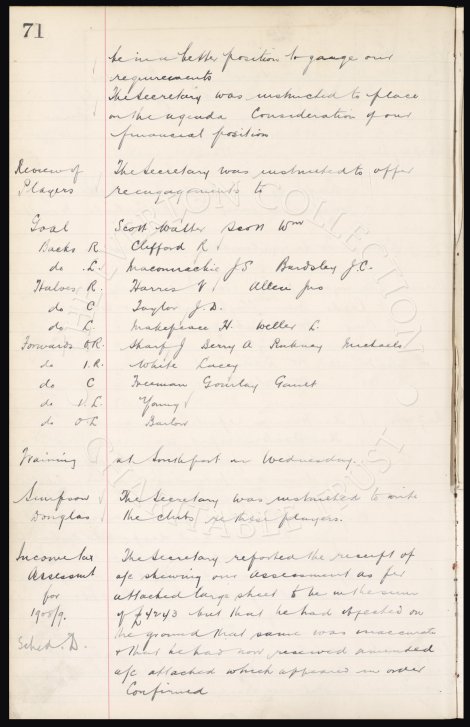 71
be in a better position to gauge our
requirements
The Secretary was instructed to place
on the agenda Consideration of our
financial position
Review of Players The Secretary was instructed to offer
reengagements to
Goal Scott Walter Scott Wm
Backs R. Clifford R
do L. Maconnachie J.S. Bardsley J.C.
Halves R. Harris V. Allen Jas
do C Taylor J.D.
do L Makepeace H. Weller L.
Forwards O.R. Sharp J Berry A Rafferty Michaels
do I.R. White Lacey
do C Freeman Gourlay Gault
do I.L. Young
do O.L Barlow
Training at Southport on Wednesday.
Simpson The Secretary was instructed to write
Douglas the clubs re these players.
Income tax The Secretary reported the receipt of
Assessmt a/c shewing our assessment as per
for attached large sheet to be in the sum
1908/9. of £4243 but that he had objected on
Sched. D. the ground that same was inaccurate
& that he had now received amended
a/c attached which appeared in order
Confirmed
EVERTON COLLECTION
CHARITABLE TRUST